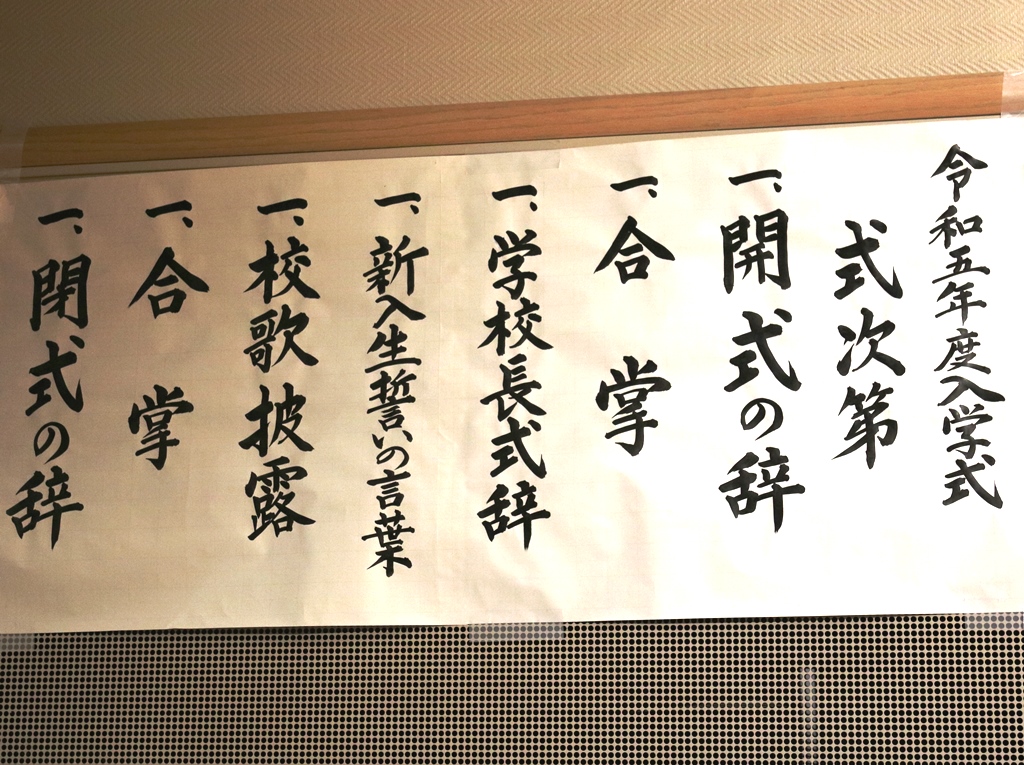 令和五年度入学式
式次第
一、開式の辞
一、合 掌
一、学校長式辞
一、新入生誓いの言葉
一、校歌披露
一、合 掌
一、閉式の辞